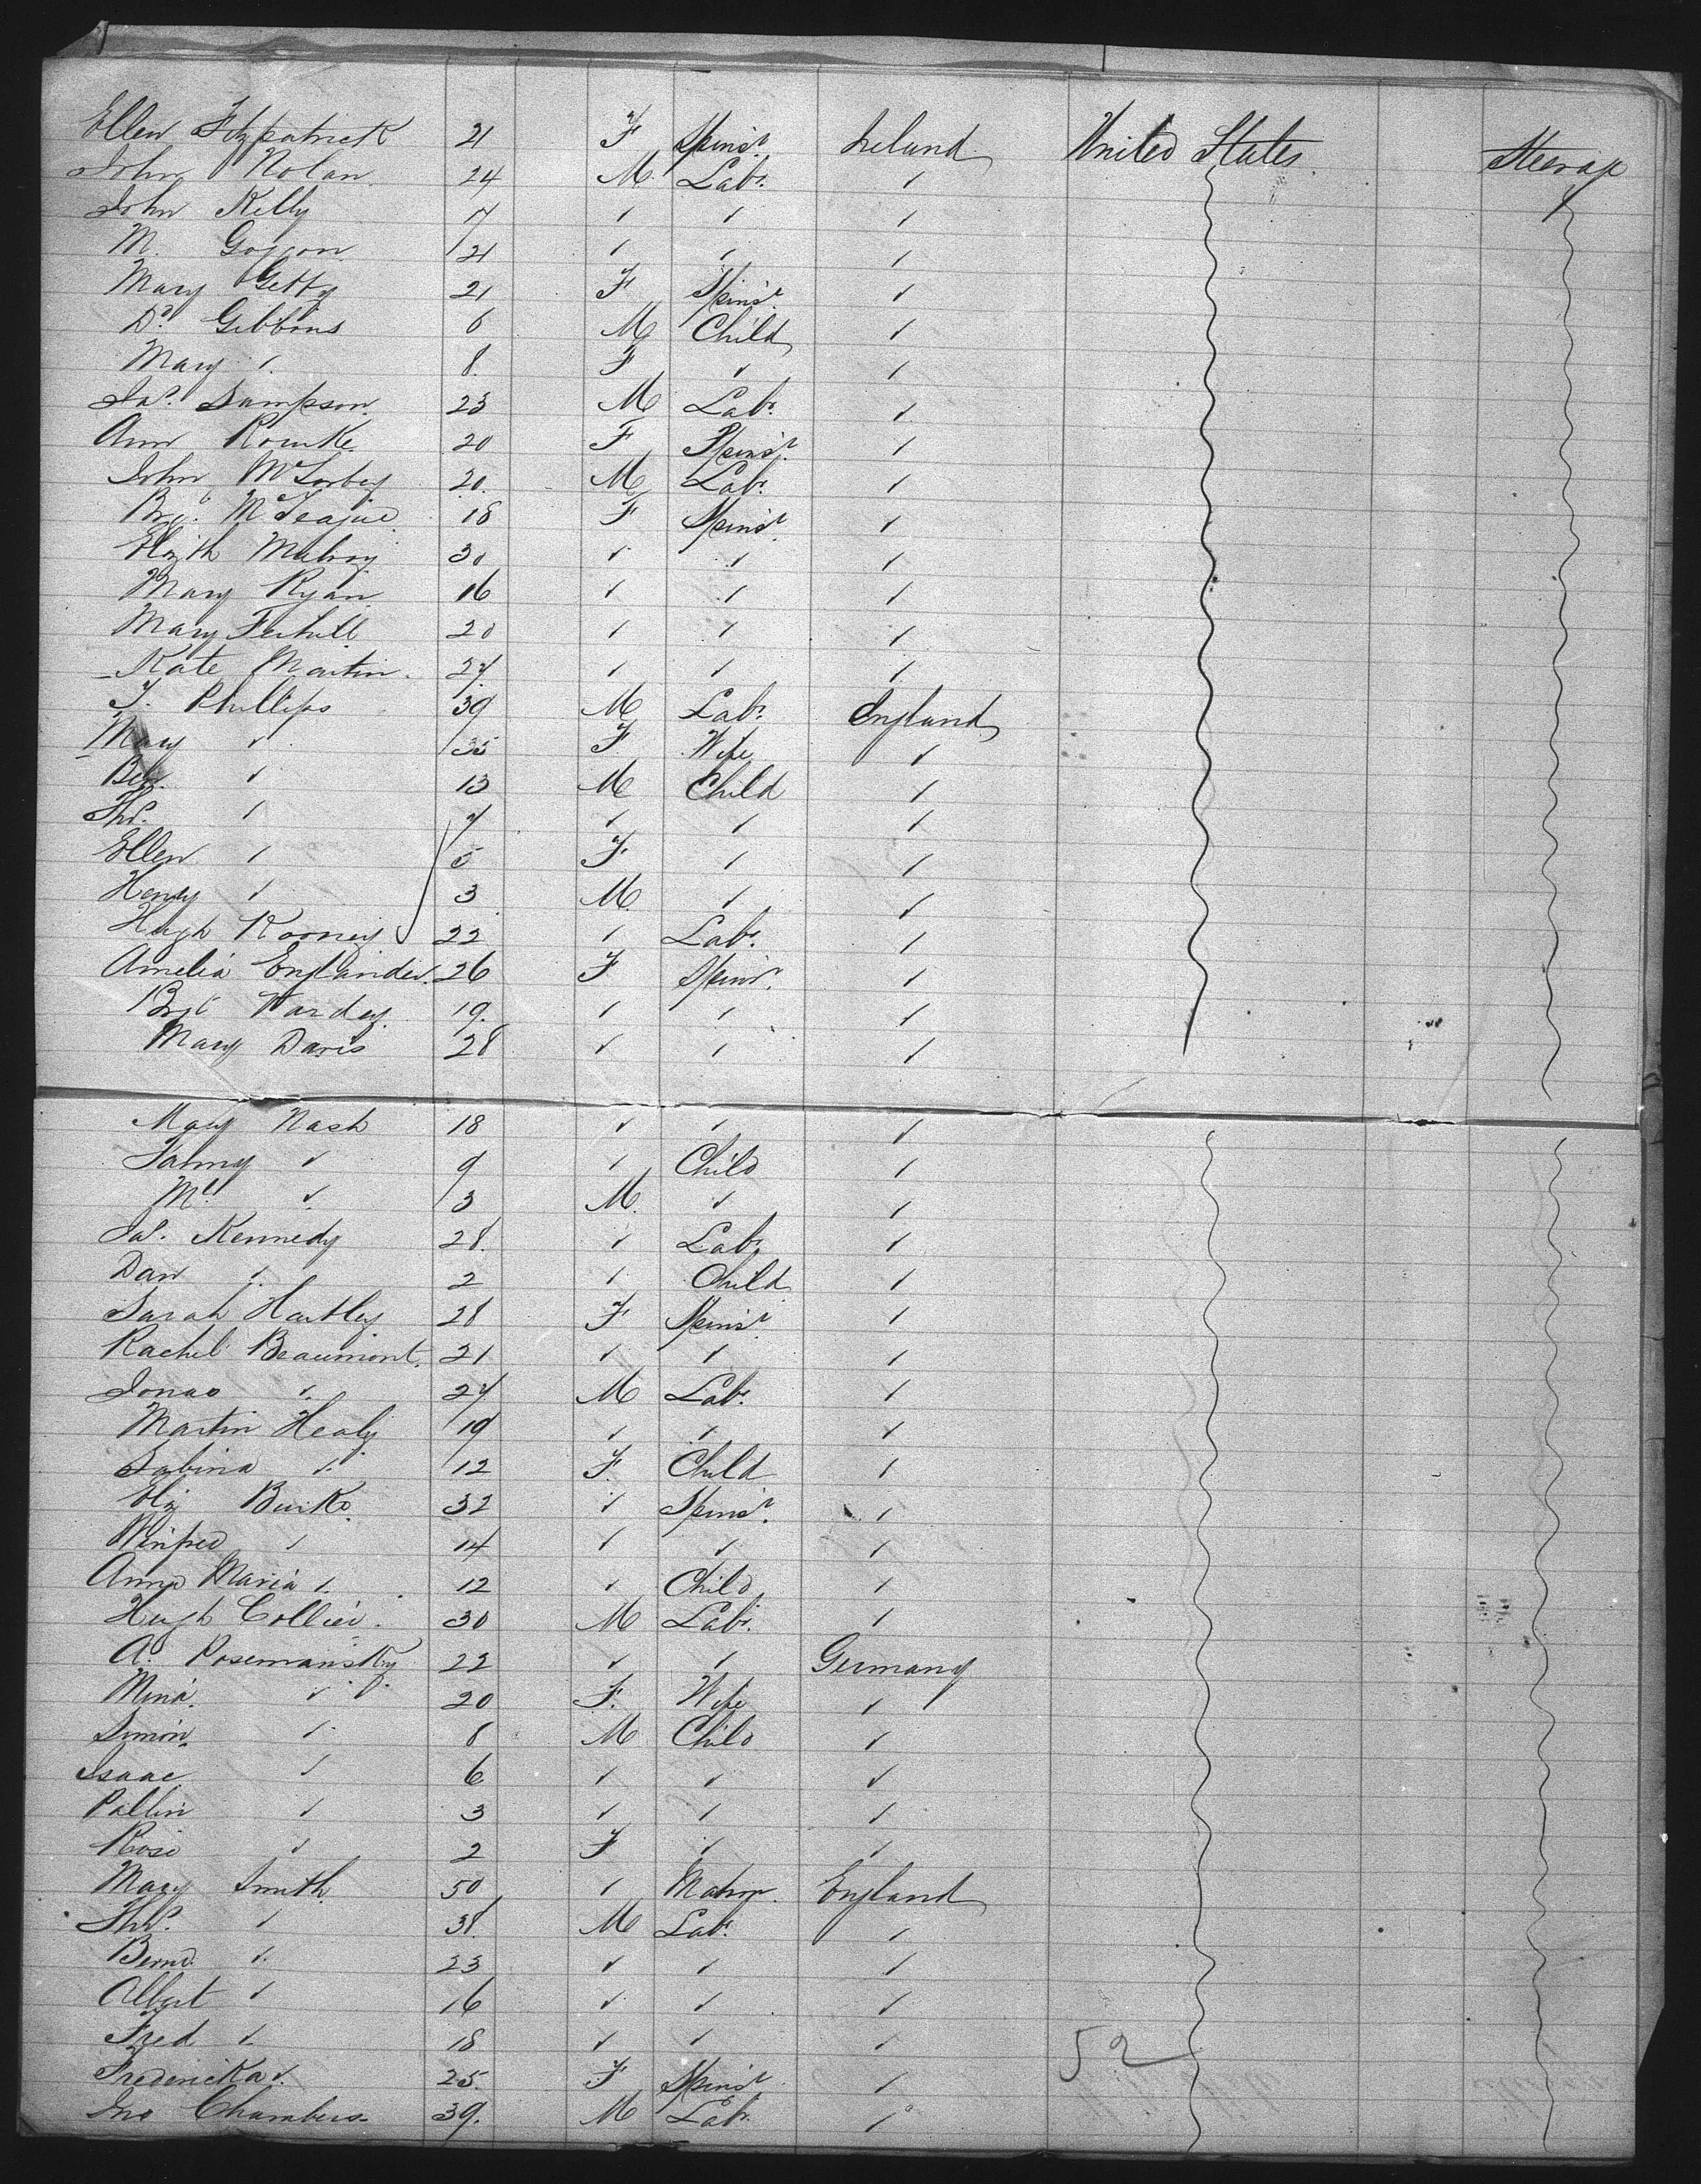 Ellen Fitzpatrick 21 F Spinsr Ireland United States Steerage
John Nolan 24 M Labr. "
John Kelly 17 " " "
M. Goggon 21 " " "
Mary Getty 21 F Spinsr "
Do. Gibbons 6 M Child "
Mary " 8 F " "
Jas. Sampson 23 M Labr. "
Ann Rourke 20 F Spinsr. "
John McSorley 20 M Labr. "
Brgt. McTeague 18 F Spinsr "
Elizth 30 " " "
Mary Ryan 16 " " "
Mary 20 " " "
Kate Martin 27 " " "
T. Phillips 39 M Labr. England
Mary " 35 F Wife "
Ben. " 13 M Child "
Ths. " 7 " " "
Ellen " 5 F " "
Henry " 3 M " "
Hugh Rooney 22 " Labr. "
Amelia Englander 26 F Spinsr. "
Brgt 19 " " "
Mary Davis 28 " " "
Mary Nash 18 " " "
Fanny " 9 " Child "
Ml. " 3 M " "
Jas. Kennedy 28 " Labr "
Dan " 2 " Child "
Sarah Hartley 28 F Spinsr "
Rachel Beaumont 21 " " "
Jonas " 27 M Labr. "
Martin Healy 19 " " "
Sabina " 12 F Child "
Eliz Burke 32 " Spinsr. "
Winfred " 14 " " "
Anna Maria " 12 " Child "
Hugh Collier 30 M Labr. "
A. Posemansky 22 " " Germany
Mina " 20 F. Wife "
Simon " 8 M Child "
Isaac " 6 " " "
Pallin " 3 " " "
Rosi " 2 F " "
Mary Smith 50 " Matron England
Thos. " 38 M Labr. "
Bernd. " 23 " " "
Albert " 16 " " "
Fred " 18 " " " 52
Fredericka " 25 F Spinsr "
Jno Chambers 39. M Labr "